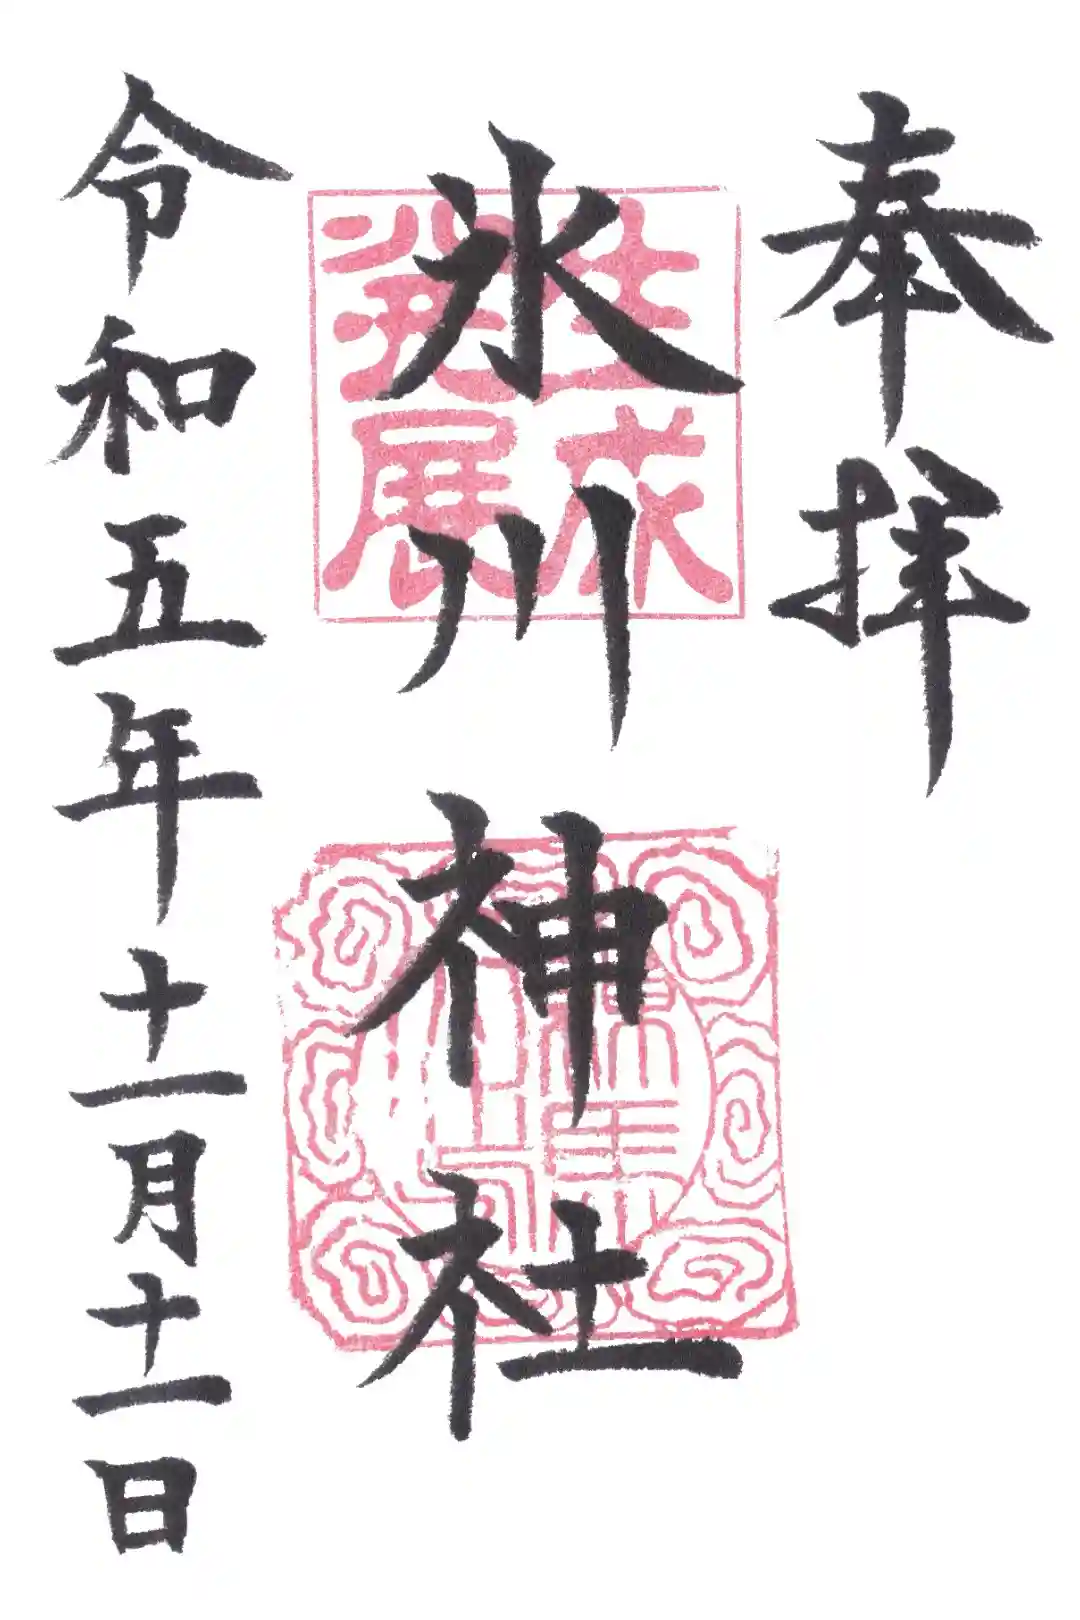 奉拝
氷川神社
生成
発展
令和五年十一月十一日